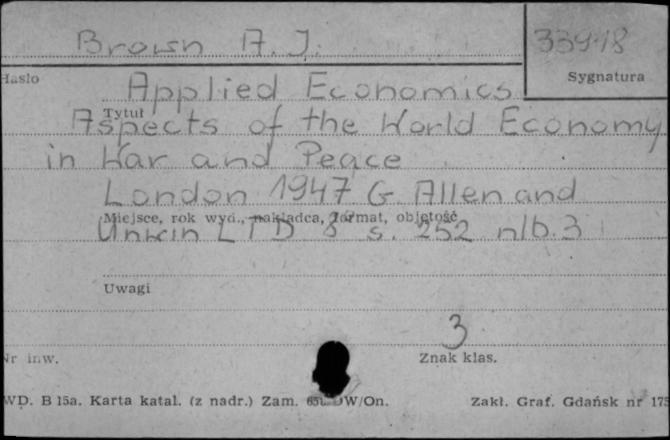 Brown A. J.
33918
Hasło
Sygnatura
Applied Economics
Tytuł
Aspects of the World Economy
in War and Peace
London 1947 G. Allen and
Miejsce, rok wyd., nakładca, format, objętość
Unwin LTD 8° s. 252 nlb. 3
Uwagi
3
Nr inw.
Znak klas.
WD. B 15a. Karta katal. (z nadr.) Zam. DW/On.
Zakł. Graf. Gdańsk nr 175